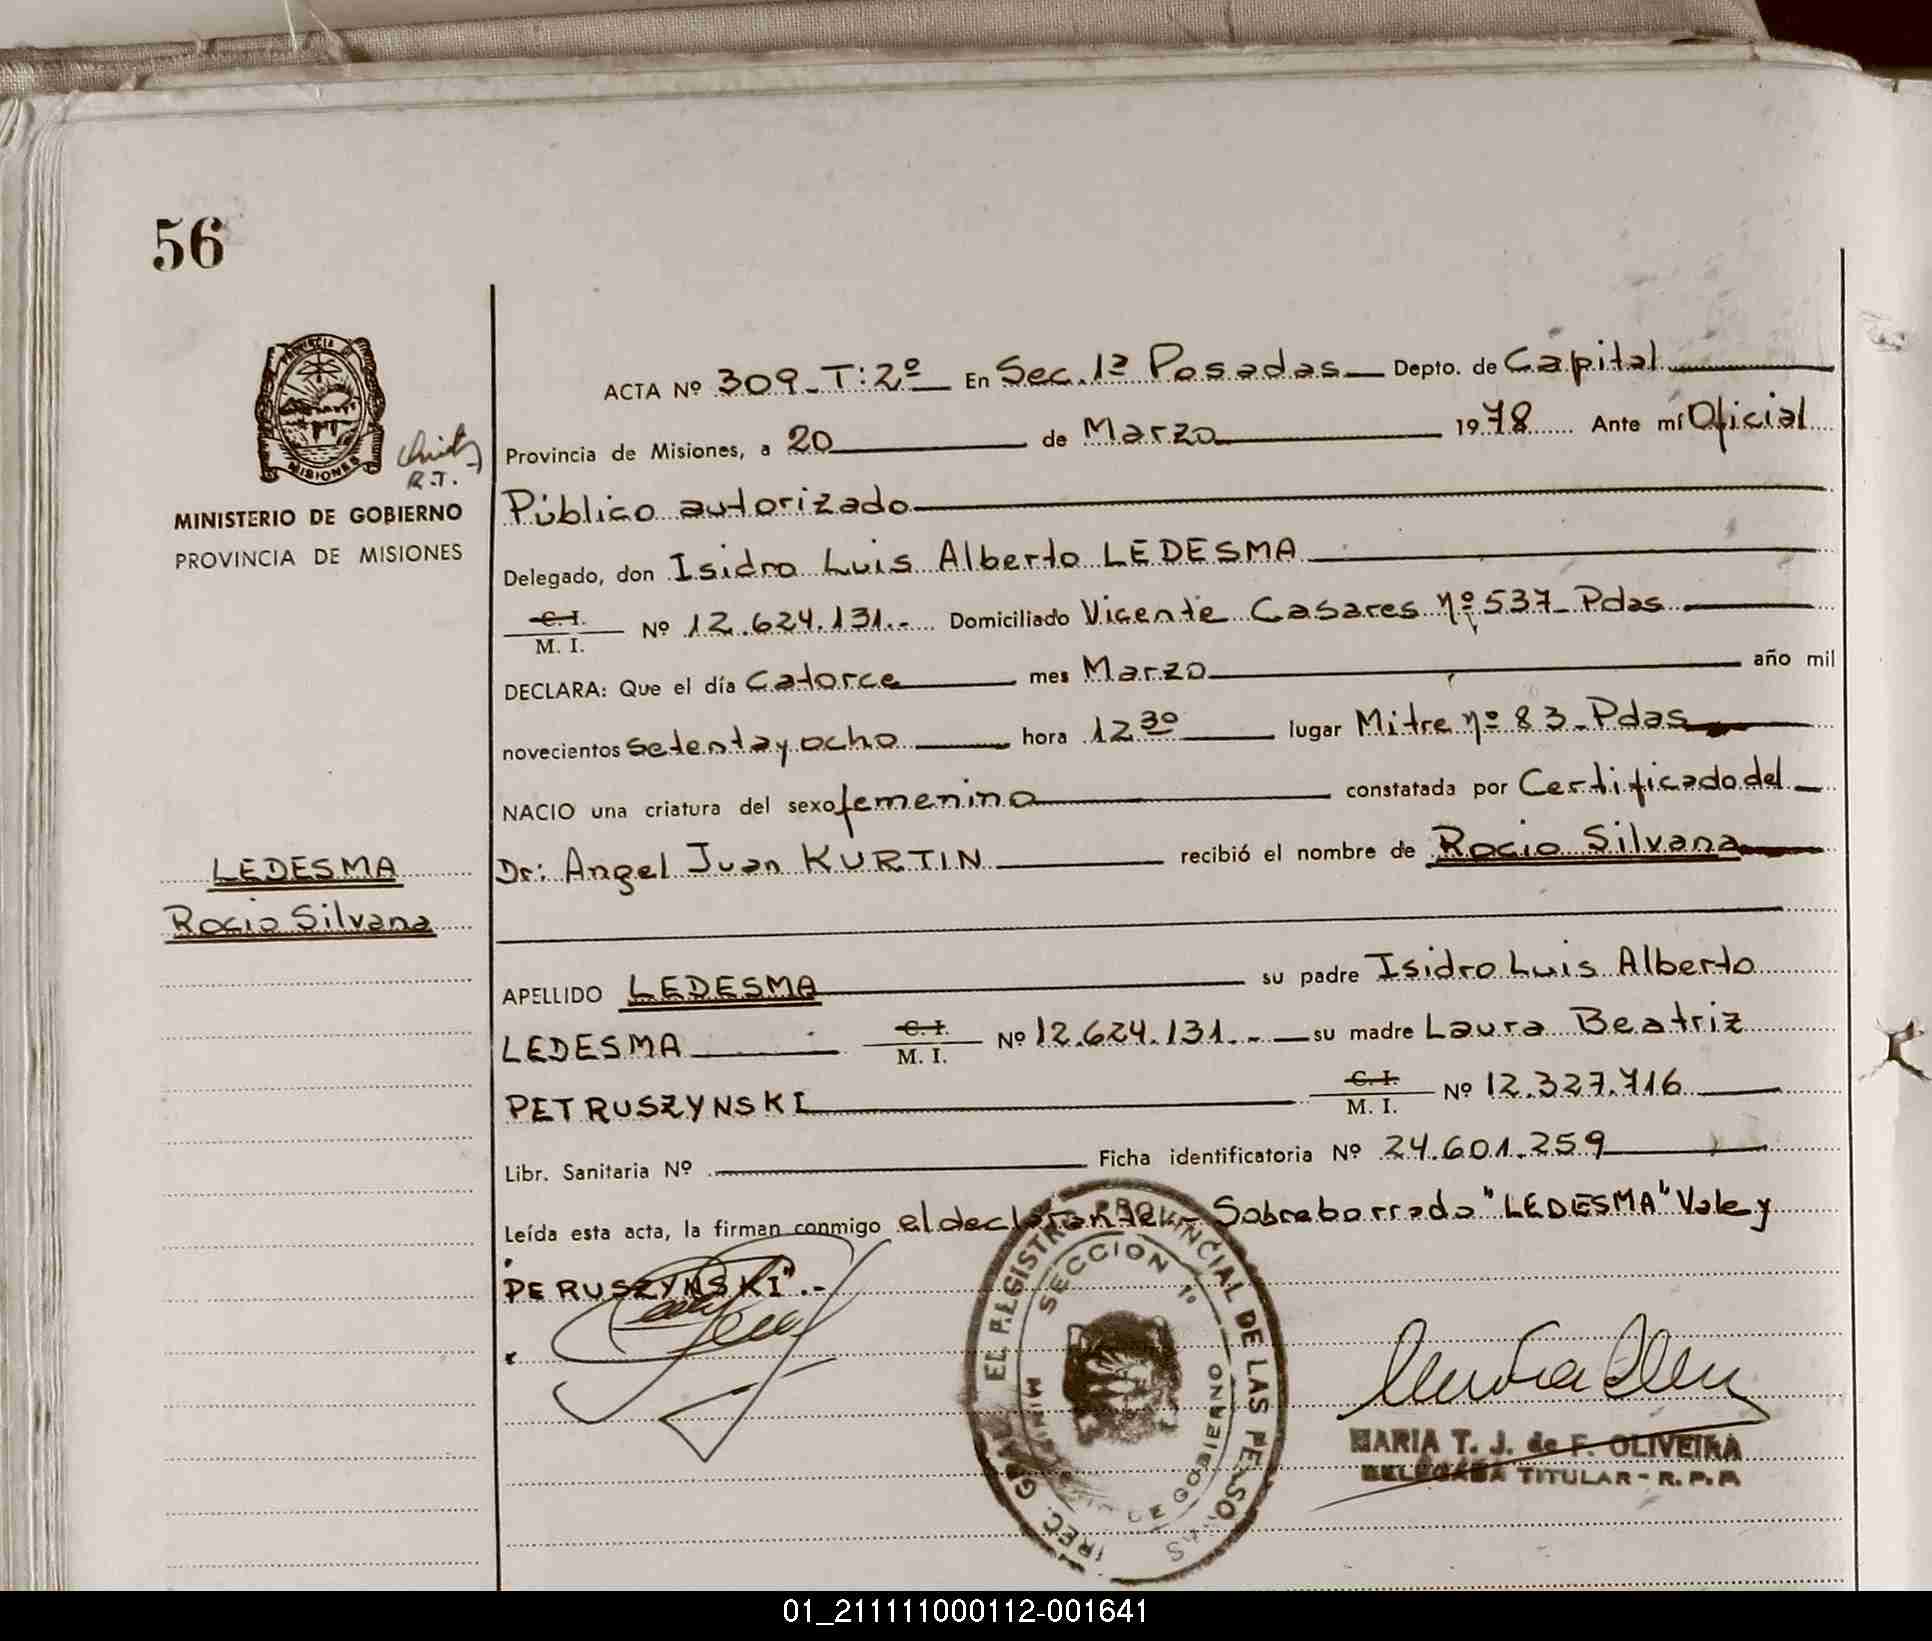 56
PROVINCIA DE
MISIONES
R.T.
MINISTERIO DE GOBIERNO
PROVINCIA DE MISIONES
LEDESMA
Rocio Silvana
ACTA Nº 309_T:2º En Sec.1ª Posadas Depto. de Capital
Provincia de Misiones, a 20 de Marzo 1978 Ante mí Oficial
Público autorizado
Delegado, don Isidro Luis Alberto LEDESMA
C.I.
M. I. Nº 12.624.131.- Domiciliado Vicente Casares Nº 537_Pdas
DECLARA: Que el día Catorce mes Marzo año mil
novecientos setenta y ocho hora 12 30 lugar Mitre Nº 83_Pdas
NACIO una criatura del sexo femenino constatada por Certificado del
Dr: Angel Juan KURTIN recibió el nombre de Rocio Silvana
APELLIDO LEDESMA su padre Isidro Luis Alberto
LEDESMA C.I. M. I. Nº 12.624.131.- su madre Laura Beatriz
PETRUSZYNSKI C.I. M. I. Nº 12.327.716
Libr. Sanitaria Nº Ficha identificatoria Nº 24.601.259
Leída esta acta, la firman conmigo el declarante.- Sobreborrado "LEDESMA" Vale y
"PERUSZYNSKI".-
EL REGISTRO PROVINCIAL DE LAS PERSONAS
SECCION 1º
MINISTERIO DE GOBIERNO
MARIA T. J. de F. OLIVEIRA
DELEGADA TITULAR - R. P. P.
01_211111000112-001641